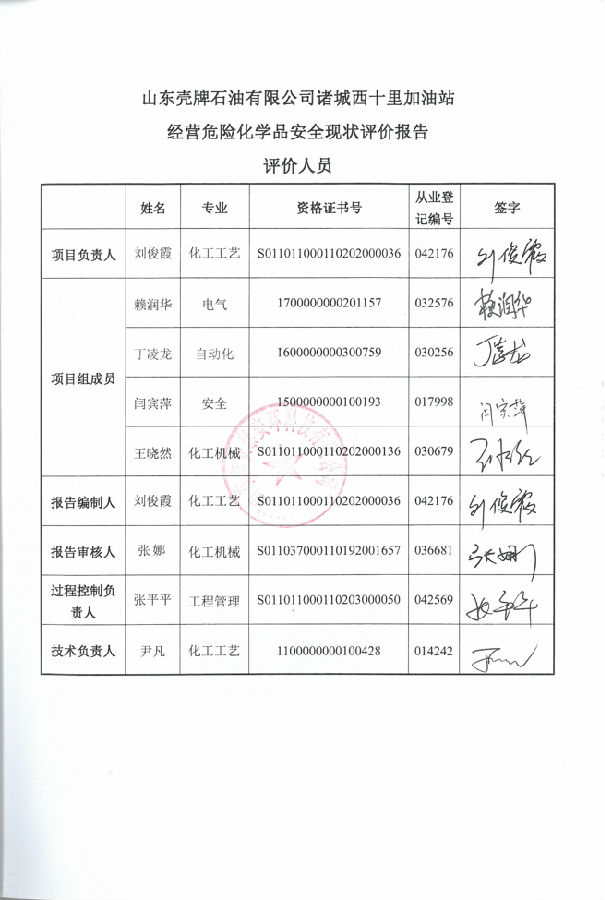 山东壳牌石油有限公司诸城西十里加油站
经营危险化学品安全现状评价报告
评价人员
姓名 专业 资格证书号 从业登记编号 签字
项目负责人 刘俊霞 化工工艺 S011011000110202000036 042176 刘俊霞
项目组成员 赖润华 电气 1700000000201157 032576 赖润华
丁凌龙 自动化 1600000000300759 030256
闫宾萍 安全 1500000000100193 017998
王晓然 化工机械 S011011000110202000136 030679
报告编制人 刘俊霞 化工工艺 S011011000110202000036 042176 刘俊霞
报告审核人 张娜 化工机械 S011037000110192001657 036681 张娜
过程控制负责人 张平平 工程管理 S011011000110203000050 042569
技术负责人 尹凡 化工工艺 1100000000100428 014242